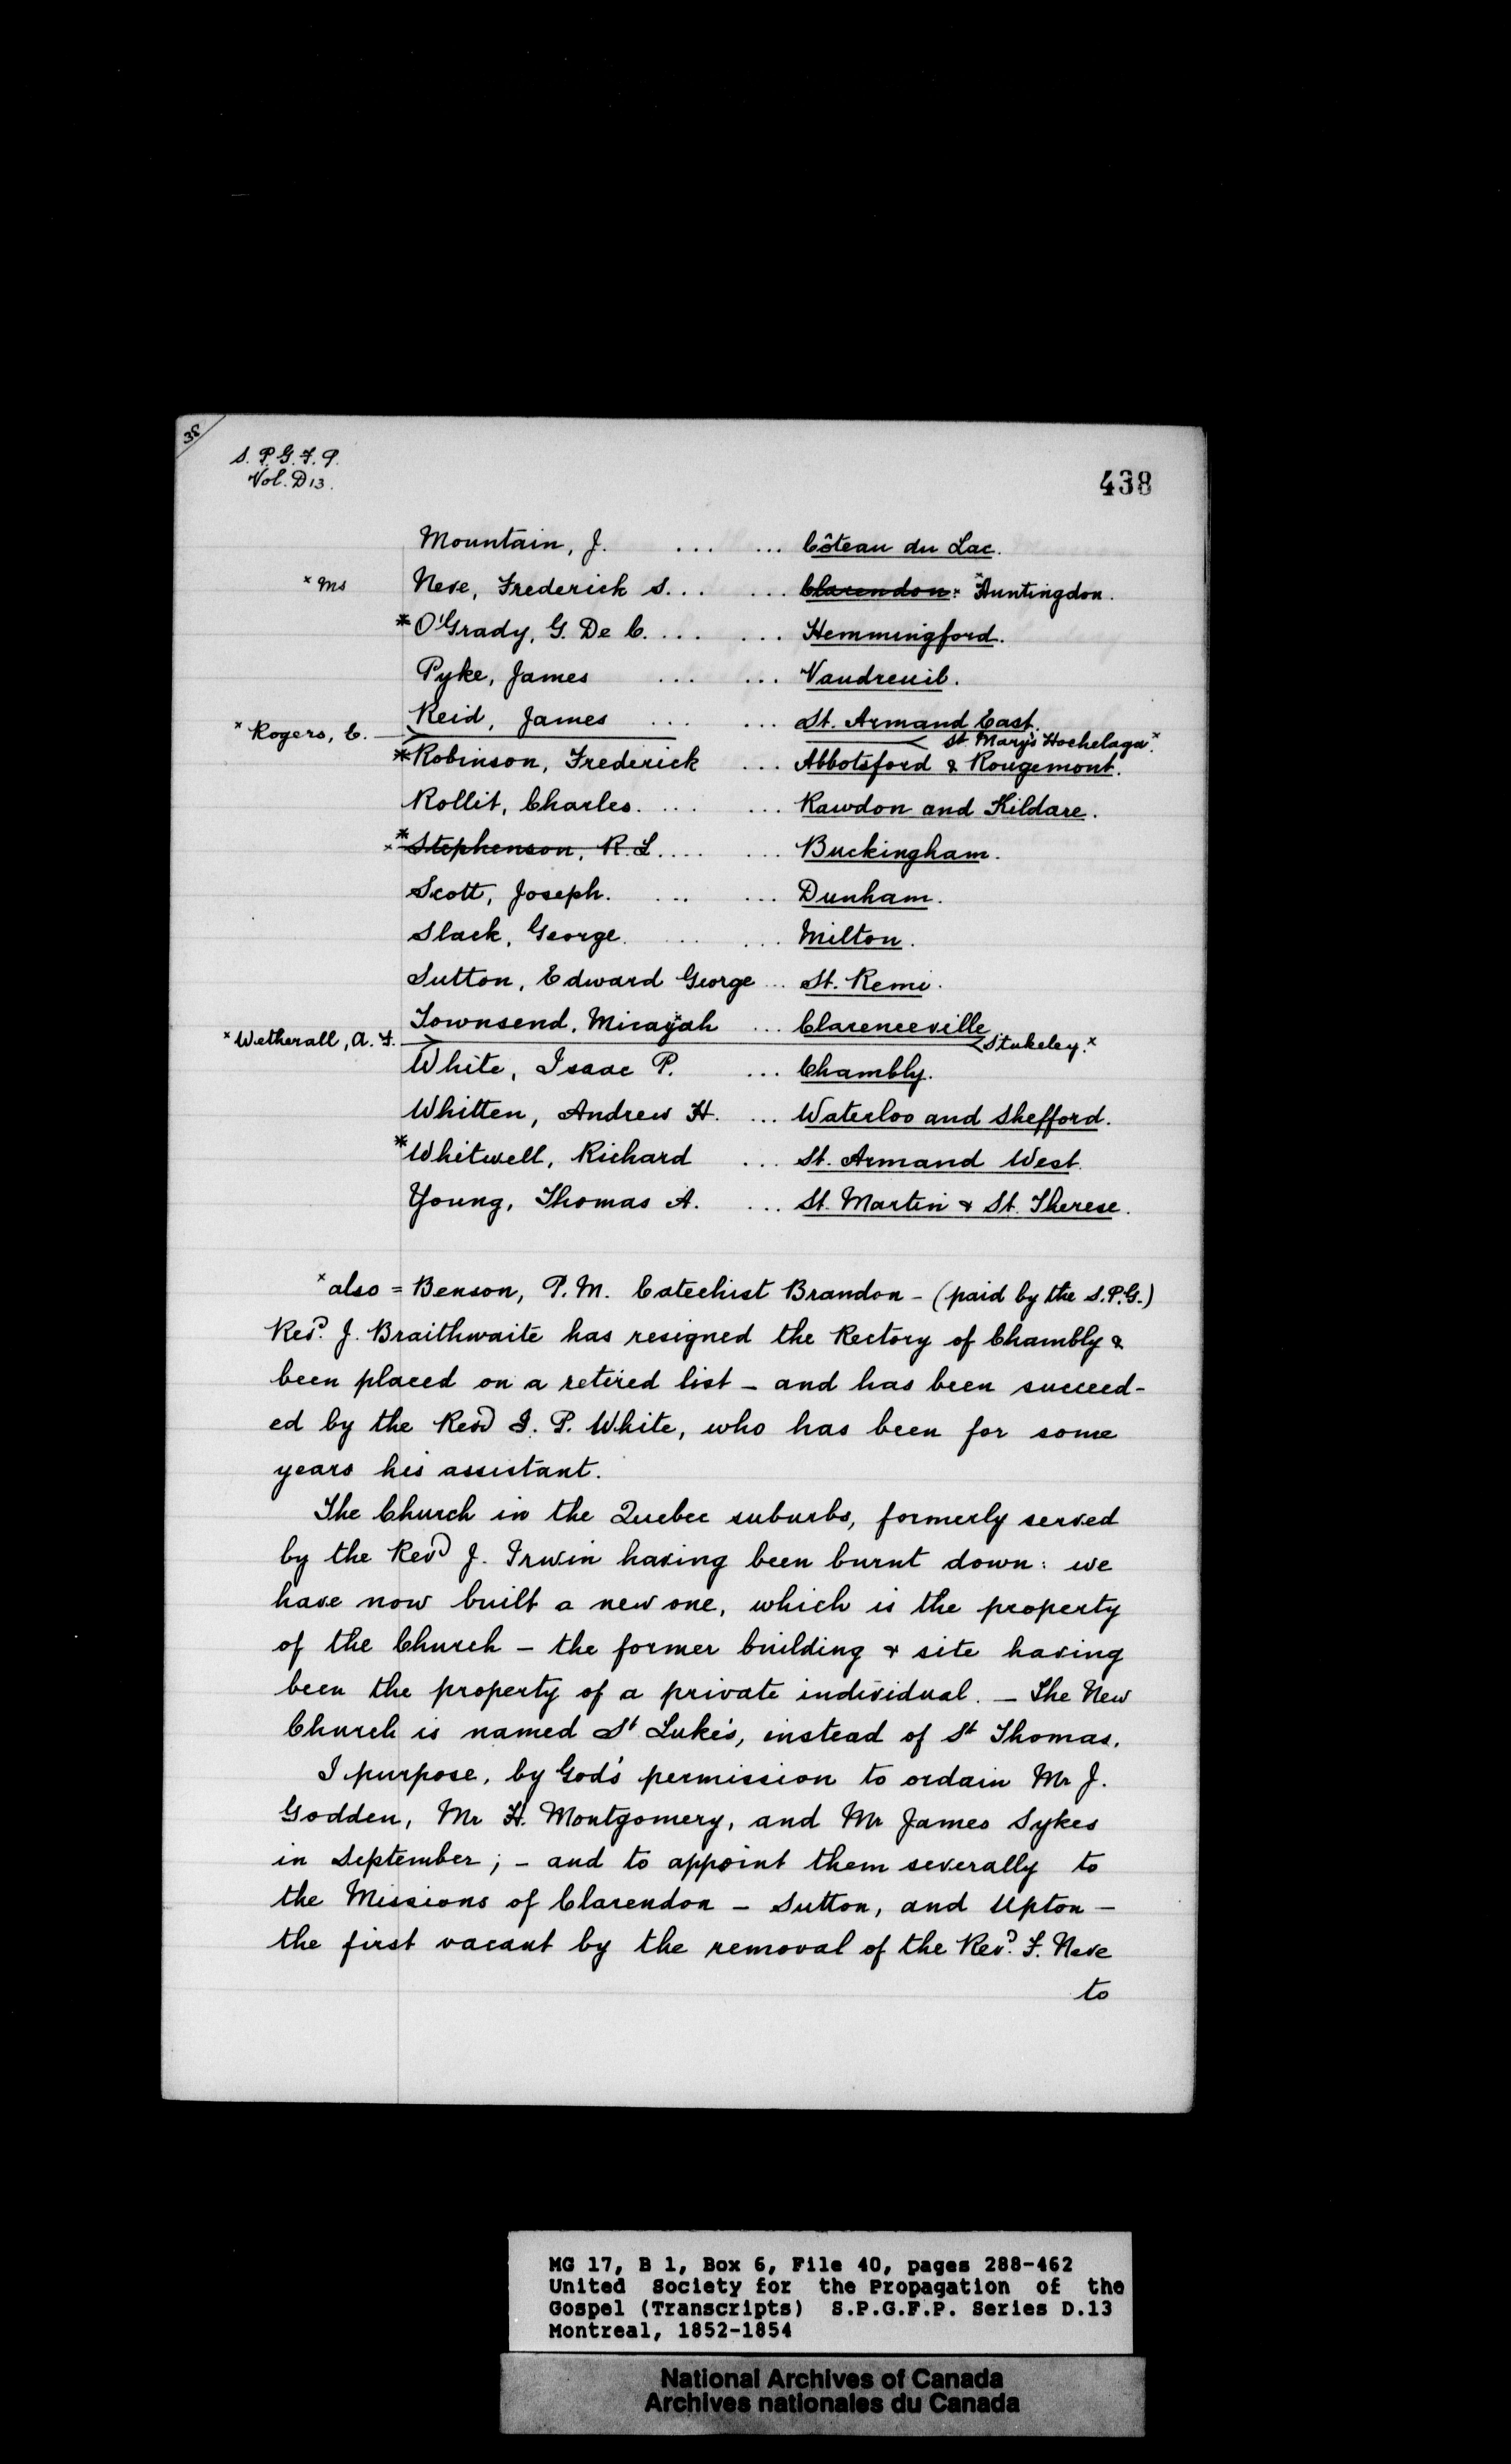 38
S. P. G. F. P.
Vol. D13.
438
Mountain, J. ... ... Côteau du Lac.
x Ms Neve, Frederick S. ... ... Clarendon. x Huntingdon.
*O'Grady, G. De C. ... ... Hemmingford.
Pyke, James ... ... Vaudreuil.
Reid, James ... ... St. Armand East.
x Rogers, C. St. Mary's Hochelaga x.
*Robinson, Frederick ... Abbotsford & Rougemont.
Rollit, Charles. ... ... Rawdon and Kildare.
x *Stephenson, R. L. ... ... Buckingham.
Scott, Joseph. ... ... Dunham.
Slack, George. ... ... Milton.
Sutton, Edward George ... St. Remi.
Townsend, Micajah ... Clarenceville
x Wetherall, A. F. Stukeley. x
White, Isaac P. ... Chambly.
Whitten, Andrew H. ... Waterloo and Shefford.
*Whitwell, Richard ... St. Armand West.
Young, Thomas A. ... St. Martin & St. Therese.
x also = Benson, P. M. Catechist Brandon - (paid by the S.P.G.)
Revd. J. Braithwaite has resigned the Rectory of Chambly &
been placed on a retired list - and has been succeed-
ed by the Revd I. P. White, who has been for some
years his assistant.
The Church in the Quebec suburbs, formerly served
by the Revd J. Irwin having been burnt down: we
have now built a new one, which is the property
of the Church - the former building & site having
been the property of a private individual. - The New
Church is named St Luke's, instead of St Thomas.
I purpose, by God's permission to ordain Mr J.
Godden, Mr H. Montgomery, and Mr James Sykes
in September; - and to appoint them severally to
the Missions of Clarendon - Sutton, and Upton -
the first vacant by the removal of the Revd. F. Neve
to
MG 17, B 1, Box 6, File 40, pages 288-462
United Society for the Propagation of the
Gospel (Transcripts) S.P.G.F.P. Series D.13
Montreal, 1852-1854
National Archives of Canada
Archives nationales du Canada